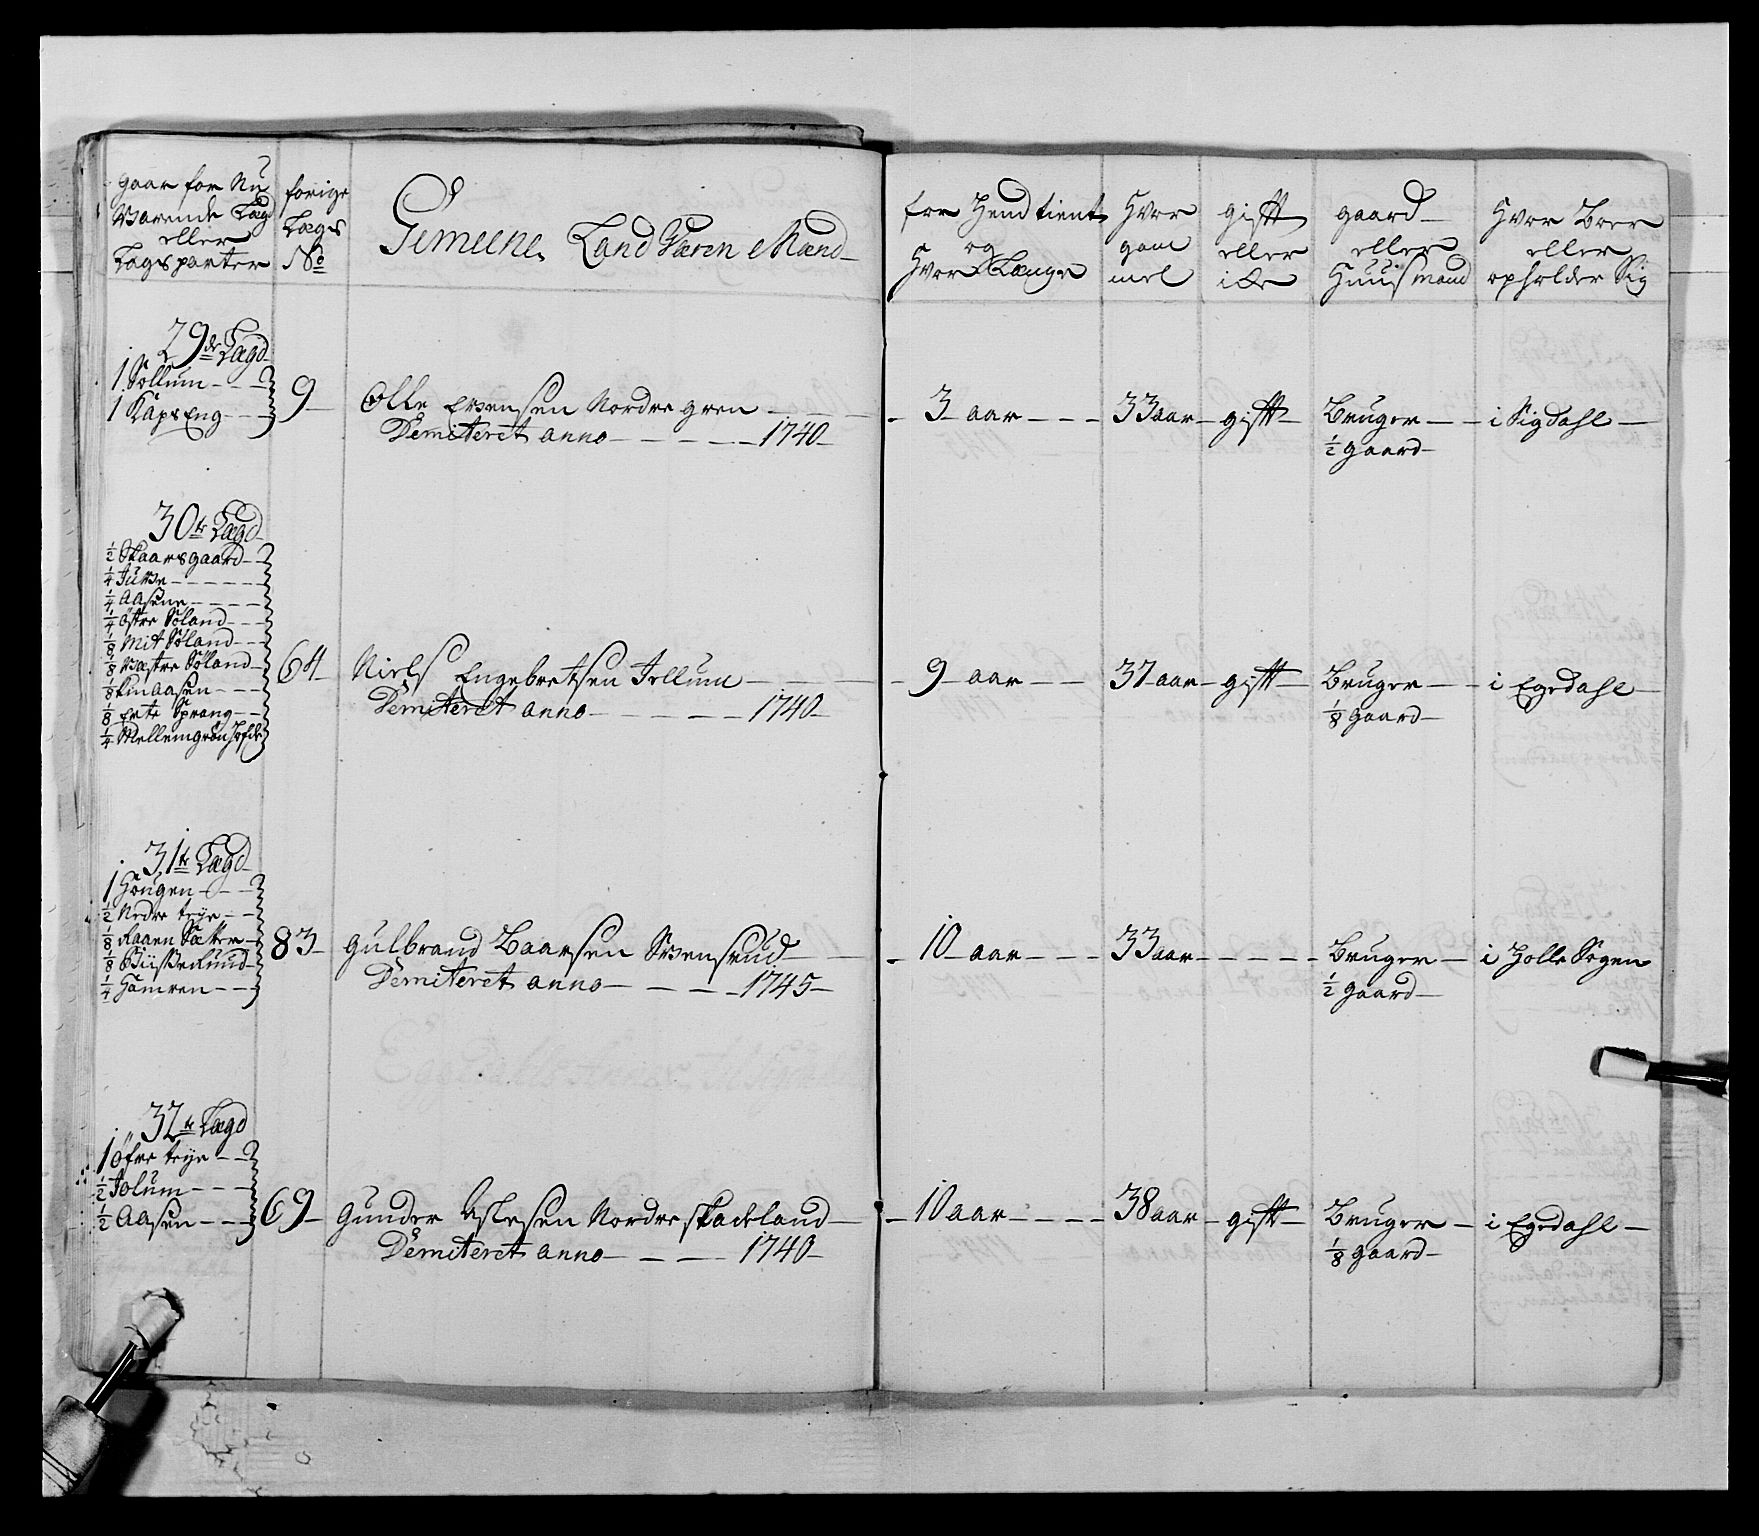 gaar for Nu
Værende Lægd
eller
Lægs parter
forige
Lægs
No
Gemeene Land Væren Mænd
för Hend tient
og
Hvor Længe
Hvor
gam
mel
gifft
eller
ei
gaard
eller
Huusmand
Hvor Boer
eller
opholder Sig
29de Lægd
1 Sollum
1 Kaps Eng
9
Olle Ersensen Nordre gren
Demiteret anno 1740
3 aar
33 aar
gifft
Bruger
1/2 gaard
i Sigdahl
30te Lægd
1/2 Skaarsgaard
1/4 Juvse
1/4 Aasene
1/4 östre Söland
1/8 Mit Söland
1/8 Væstre Söland
1/8 Linaasen
1/8 Ente Sprang
1/4 Mellemgrön Hofde
64
Niels Engebretsen Jellum
Demiteret anno 1740
9 aar
37 aar
gifft
Bruger
1/8 gaard
i Egedahl
31te Lægd
1 Hougen
1/2 Nedre trye
1/8 Raaen Sætter
1/8
1/4 Hamren
83
Gulbrand Baarsen Svensrud
Demiteret anno 1745
10 aar
33 aar
Bruger
1/2 gaard
i Holle Sogen
32te Lægd
1 öfre trye
1/2 Jolum
1/2 Aasen
69
Gunder Aslesen Nordre skadeland
Demiteret anno 1740
10 aar
38 aar
gifft
Bruger
1/8 gaard
i Egedahl